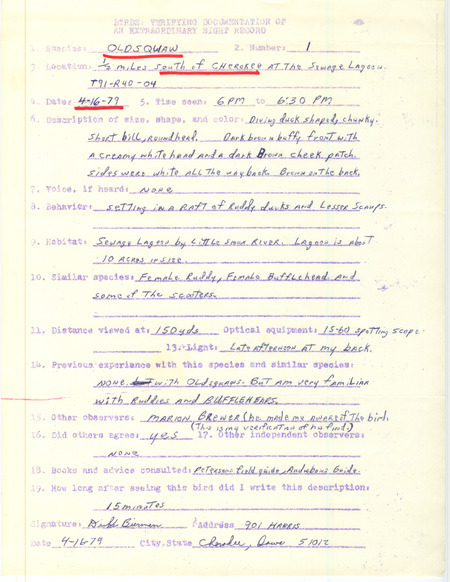 BIRDS: VERIFYING DOCUMENTATION OF
AN EXTRAORDINARY SIGHT RECORD
1. Species: OLDSQUAW 2. Number: 1
3. Location: 1/2 miles South of CHEROKEE AT The Sewage Lagoon.
T91-R40-04
4. Date: 4-16-79 5. Time seen: 6 PM to 6:30 PM
6. Description of size, shape, and color: Diving duck shaped, chunky-
short bill, round head. Dark brown buffy front with
a creamy white head and a dark Brown cheek patch.
sides were white ALL The way back. Brown on the back.
7. Voice, if heard: NONE
8. Behavior: setting in a RAFT of Ruddy ducks and Lesser Scaups.
9. Habitat: Sewage Lagoon by Little Sioux River. Lagoon is about
10 ACRES in size.
10. Similar species: Female Ruddy, Female Bufflehead and
some of The scoters.
11. Distance viewed at: 150 yds Optical equipment: 15-60 spotting scope.
13. Light: Late afternoon at my back.
14. Previous experience with this species and similar species:
NONE with Oldsquaws. But am very familiar
with Ruddies and BUFFLEHEADS.
15. Other observers: MARION BREWER (he made me aware of The bird.
(This is my verification of his find.)
16. Did others agree: yes 17. Other independent observers:
NONE
18. Books and advice consulted: Peterson field guide, Audubons Guide.
19. How long after seeing this bird did I write this description:
15 minutes
Signature: Address 901 HARRIS
Date 4-16-79 City, State Cherokee, Iowa 51012